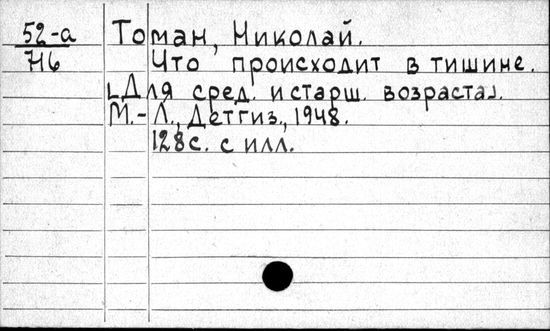 52-а Томан, Николай.
746 Что происходит в тишине.
[Для сред. и старш. возраста].
М.-Л., Детгиз, 1948.
128 с. с илл.